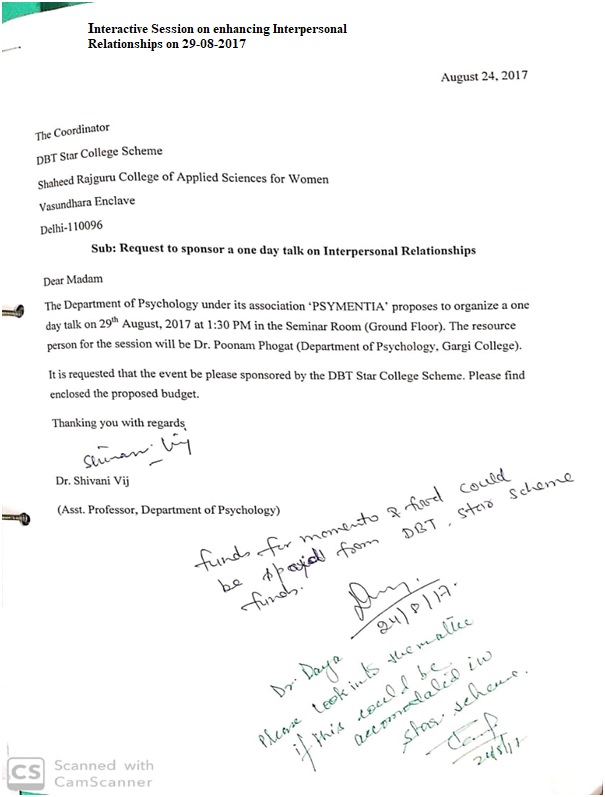 Interactive Session on enhancing Interpersonal
Relationships on 29-08-2017
August 24, 2017
The Coordinator
DBT Star College Scheme
Shaheed Rajguru College of Applied Sciences for Women
Vasundhara Enclave
Delhi-110096
Sub: Request to sponsor a one day talk on Interpersonal Relationships
Dear Madam
The Department of Psychology under its association ‘PSYMENTIA’ proposes to organize a one
day talk on 29th August, 2017 at 1:30 PM in the Seminar Room (Ground Floor). The resource
person for the session will be Dr. Poonam Phogat (Department of Psychology, Gargi College).
It is requested that the event be please sponsored by the DBT Star College Scheme. Please find
enclosed the proposed budget.
Thanking you with regards
Shivani Vij
Dr. Shivani Vij
(Asst. Professor, Department of Psychology)
funds for momento & food could
be paid from DBT. Star Scheme
funds.
24/8/17.
Dr. Daya
Please look into the matter
if this could be
accomodated in
star scheme.
24/8/17
CS Scanned with
CamScanner